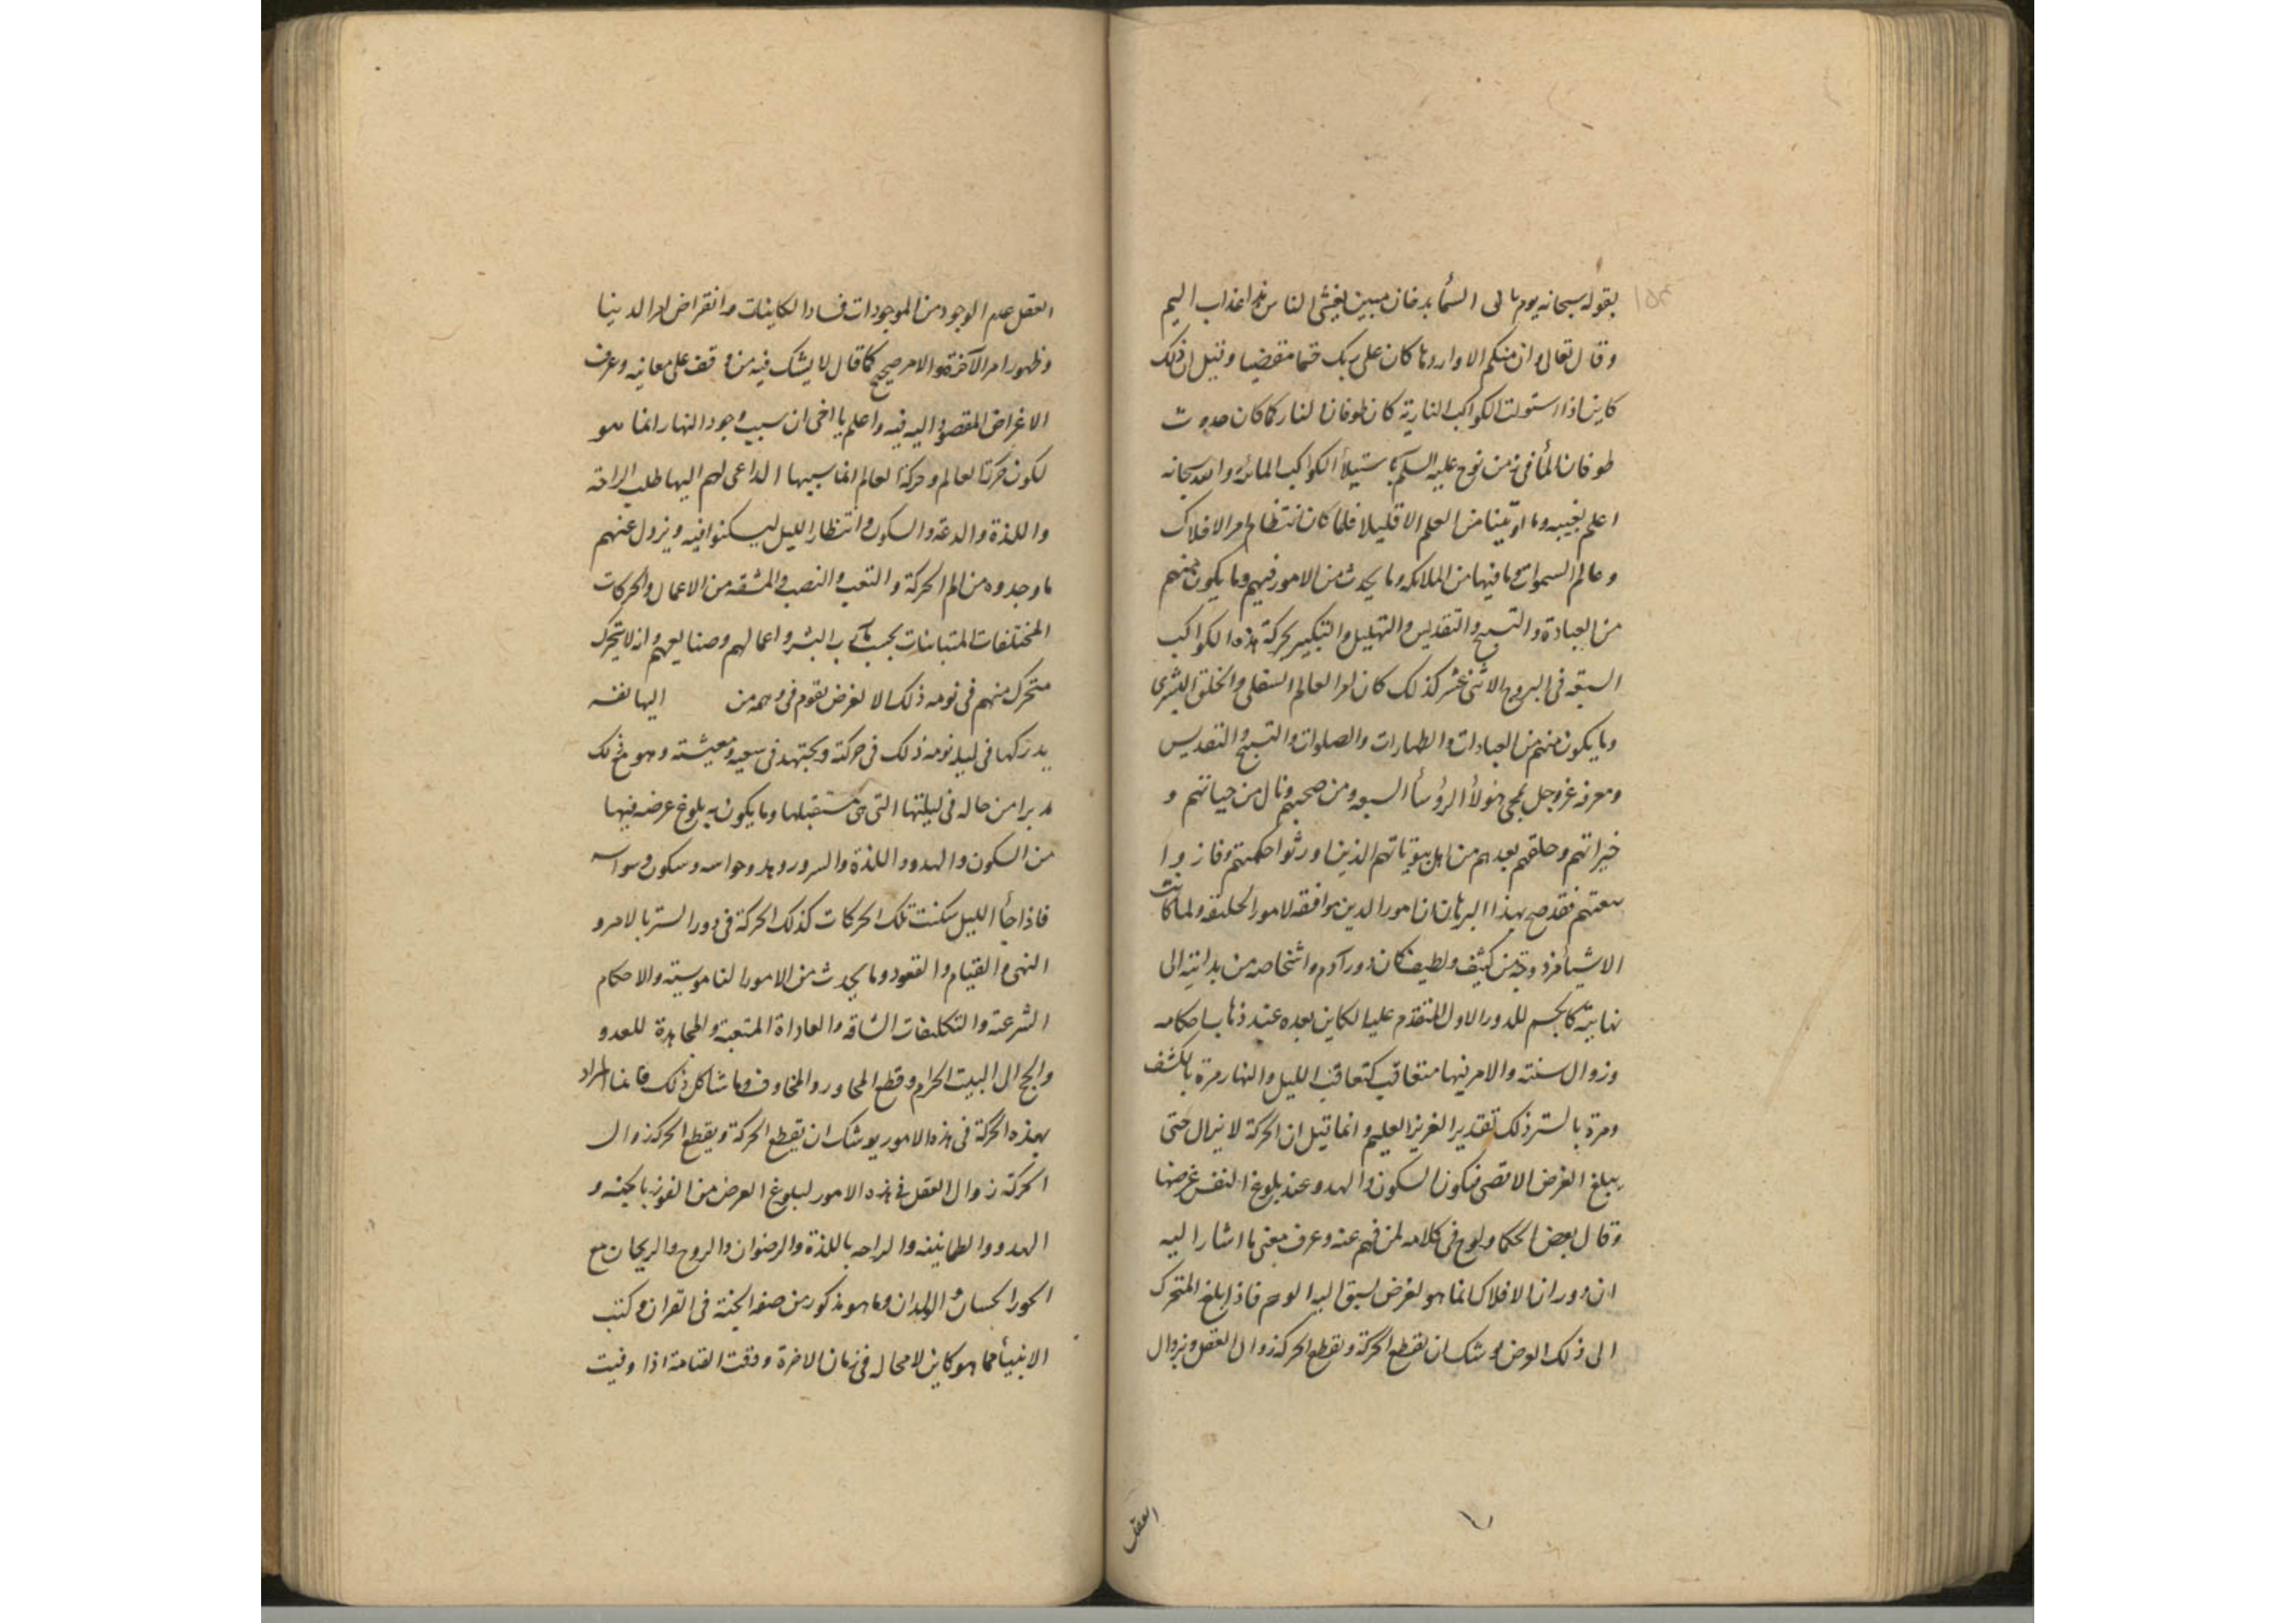 ١٥٣
بقوله سبحانه يوم تاتى السمأ بدخان مبين يغشى الناس هذا عذاب اليم
وقال تعالى وان منكم الا واردها كان على ربك حتما مقضيا وقيل ان ذلك
كاين اذا استولت الكواكب النارية كان طوفان النار كما كان حدوث
طوفان المأ فى زمن نوح عليه السلم باستيلأ الكواكب المائية والله سبحانه
اعلم بغيبه وما اوتينا من العلم الا قليلا فلما كان انتظام امر الافلاك
وعالم السموات وما فيها من الملائكه وما يحدث من الامور فيهم وما يكون منهم
من العبادة والتسبيح والتقديس والتهليل والتكبير بحركة هذه الكواكب
السبعة فى البروج الاثنى عشر كذلك كان امر العالم السفلى والخلق البشرى
وما يكون منهم من العبادات والطهارات والصلوات والتسبيح والتقديس
ومعرفه عز وجل بمجى هؤلأ الرؤسأ السبعه ومن صحبهم ونال من حياتهم و
خيراتهم وخلفهم بعدهم من اهل بيوتاتهم الذين اورثوا حكمتهم وفازوا
بنعمتهم فقد صح بهذا البرهان ان امور الدين موافقه لامور الخلقه ولما كانت
الاشيأ مزدوجة من كثيف ولطيف كان دور آدم واشخاصه من بدايته الى
نهايته كالجسم للدور الاول المتقدم عليه الكاين بعده عند ذهاب احكامه
وزوال سنته والامر فيها متعاقب كتعاقب الليل والنهار مرة بالكشف
ومرة بالستر ذلك تقدير العزيز العليم وانما قيل ان الحركة لا تزال حتى
يبلغ الغرض الاقصى فيكون السكون والهدو عند بلوغ النفس غرضها
وقال بعض الحكما ولوح فى كلامه لمن فهم عنه وعرف معنى ما اشار اليه
ان دوران الافلاك انما هو لغرض لسبق اليه الوهم فاذا بلغ المتحرك
الى ذلك الغرض اوشك ان تقطع الحركة وتقطع الحركة زوال العقل وبزوال
العقل
العقل عدم الوجود من الموجودات فساد الكاينات وانقراض امر الدينا
وظهور امر الآخرة والامر صحيح كما قال لا يشك فيه من وقف على معانيه وعرف
الاغراض المقصود اليه فيه واعلم يا اخى ان سبب وجود النهار انما هو
لكون حركة العالم وحركة العالم انما سببها الداعى لهم اليها طلب الراحة
واللذة والدعة والسكون وانتظار الليل ليسكنوا فيه ويزول عنهم
ما وجدوه من الم الحركة والتعب والنصب والمشقه من الاعمال والحركات
المختلفات المتباينات بحسب مآرب البشر واعمالهم وصنايعهم وانه لا يتحرك
متحرك منهم فى نومه ذلك الا لغرض يقوم فى وهمه من اليها نفسه
يدركها فى ليله نومه ذلك فى حركته ويجتهد فى سعيه ومعيشته وهو مع ذلك
مدبرا من حاله فى ليلتها التى هى مستقبلها وما يكون به بلوغ غرضه فيها
من السكون والهدو واللذة والسرور وهدو حواسه وسكون وسواسه
فاذا جأ الليل سكنت تلك الحركات كذلك الحركة فى دور الستر بالامر و
النهى والقيام والقعود وما يحدث من الامور الناموسية والاحكام
الشرعية والتكليفات الشاقه والعاداة المتعبة والمجاهدة للعدو
والحج الى البيت الحرام وقطع المحاور والمخاوف وما شاكل ذلك فانما المراد
بهذه الحركة فى هذه الامور يوشك ان تقطع الحركة وبقطع الحركة زوال
الحركة زوال العقل فى هذه الامور لبلوغ الغرض من الفوز بالجنه و
الهدو والطمانينه والراحه باللذة والرضوان والروح والريحان مع
الحور الحسان والولدان وما هو مذكور من صفه الجنة فى القران وكتب
الانبيأ مما هو كاين لا محاله فى زمان الاخرة ووقت القيامة اذا وفيت